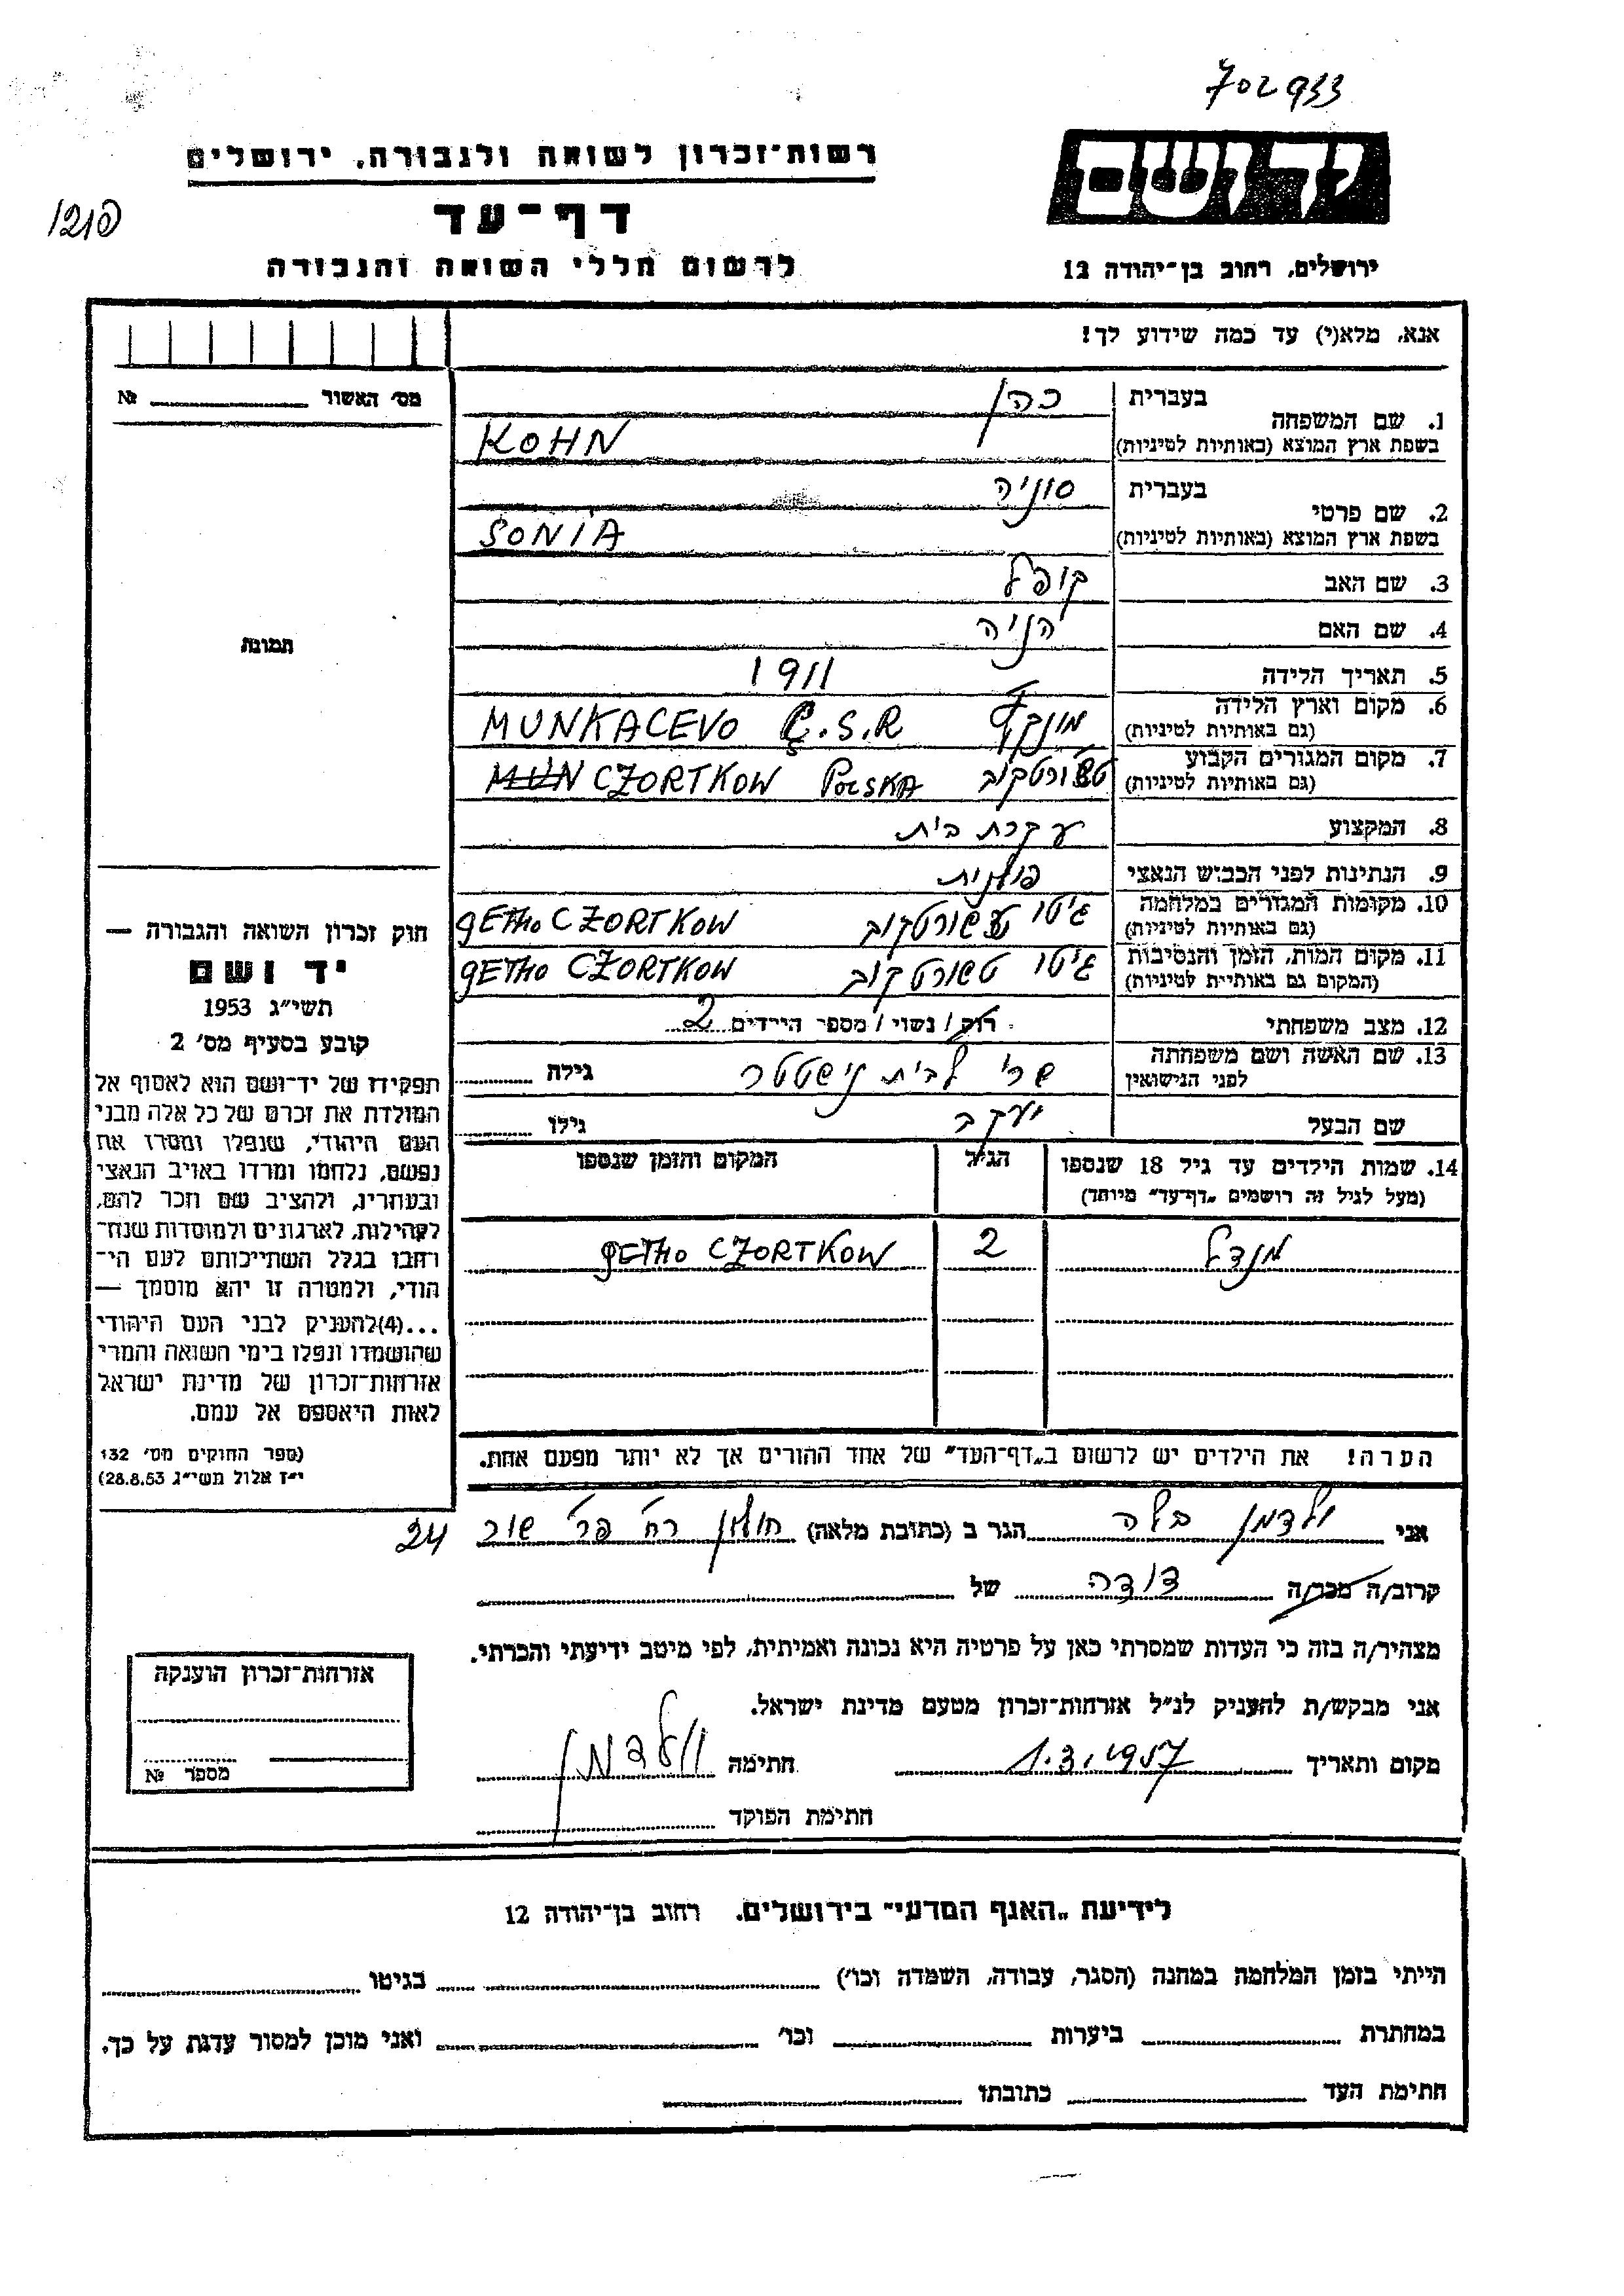 702933
רשות־זכרון לשואה ולגבורה, ירושלים
יד ושם
דף־עד
לרשום חללי השואה והגבורה
ירושלים, רחוב בן־יהודה 12
אנא, מלא(י) עד כמה שידוע לך!
מס׳ האשור № 
1. שם המשפחה
בעברית כהן
בשפת ארץ המוצא (באותיות לטיניות) KOHN
2. שם פרטי
בעברית סוניה
בשפת ארץ המוצא (באותיות לטיניות) SONIA
3. שם האב קופל
4. שם האם הניה
5. תאריך הלידה 1911
6. מקום וארץ הלידה
(גם באותיות לטיניות) MUNKACEVO Č.S.R
7. מקום המגורים הקבוע
(גם באותיות לטיניות) טשורטקוב MUN CZORTKOW POLSKA
8. המקצוע עקרת בית
9. הנתינות לפני הכבוש הנאצי פולנית
10. מקומות המגורים במלחמה
(גם באותיות לטיניות) גיטו טשורטקוב GETHO CZORTKOW
11. מקום המות, הזמן והנסיבות
(המקום גם באותיות לטיניות) גיטו טשורטקוב GETHO CZORTKOW
12. מצב משפחתי רוק / נשוי / מספר הילדים 2
13. שם האשה ושם משפחתה
לפני הנישואין שרי לבית נישטטר גילה
שם הבעל יעקב גילו
14. שמות הילדים עד גיל 18 שנספו
(מעל לגיל זה רושמים „דף־עד״ מיוחד)
הגיל
המקום והזמן שנספו
מנדל 2 GETHO CZORTKOW
הערה! את הילדים יש לרשום ב„דף־העד״ של אחד ההורים אך לא יותר מפעם אחת.
תמונה
חוק זכרון השואה והגבורה —
יד ושם
תשי״ג 1953
קובע בסעיף מס׳ 2
תפקידו של יד־ושם הוא לאסוף אל
המולדת את זכרם של כל אלה מבני
העם היהודי, שנפלו ומסרו את
נפשם, נלחמו ומרדו באויב הנאצי
ובעוזריו, ולהציב שם וזכר להם,
לקהילות, לארגונים ולמוסדות שנח־
רבו בגלל השתייכותם לעם הי־
הודי, ולמטרה זו יהא מוסמך —
...(4)להעניק לבני העם היהודי
שהושמדו ונפלו בימי השואה והמרי
אזרחות־זכרון של מדינת ישראל
לאות היאספם אל עמם.
(ספר החוקים מס׳ 132
י״ז אלול תשי״ג 28.8.53)
אני ולדמן בלה הגר ב (כתובת מלאה) חולון רח׳ פר׳ שור 24
קרוב/ה מכר/ה דודה של
מצהיר/ה בזה כי העדות שמסרתי כאן על פרטיה היא נכונה ואמיתית, לפי מיטב ידיעתי והכרתי.
אני מבקש/ת להעניק לנ״ל אזרחות־זכרון מטעם מדינת ישראל.
מקום ותאריך 1.3.1957 חתימה וולדמן
חתימת הפוקד
אזרחות־זכרון הוענקה
מספר №
לידיעת „האגף המדעי״ בירושלים. רחוב בן־יהודה 12
הייתי בזמן המלחמה במחנה (הסגר, עבודה, השמדה וכו׳) בגיטו
במחתרת ביערות וכו׳ ואני מוכן למסור עדות על כך.
חתימת העד כתובתו